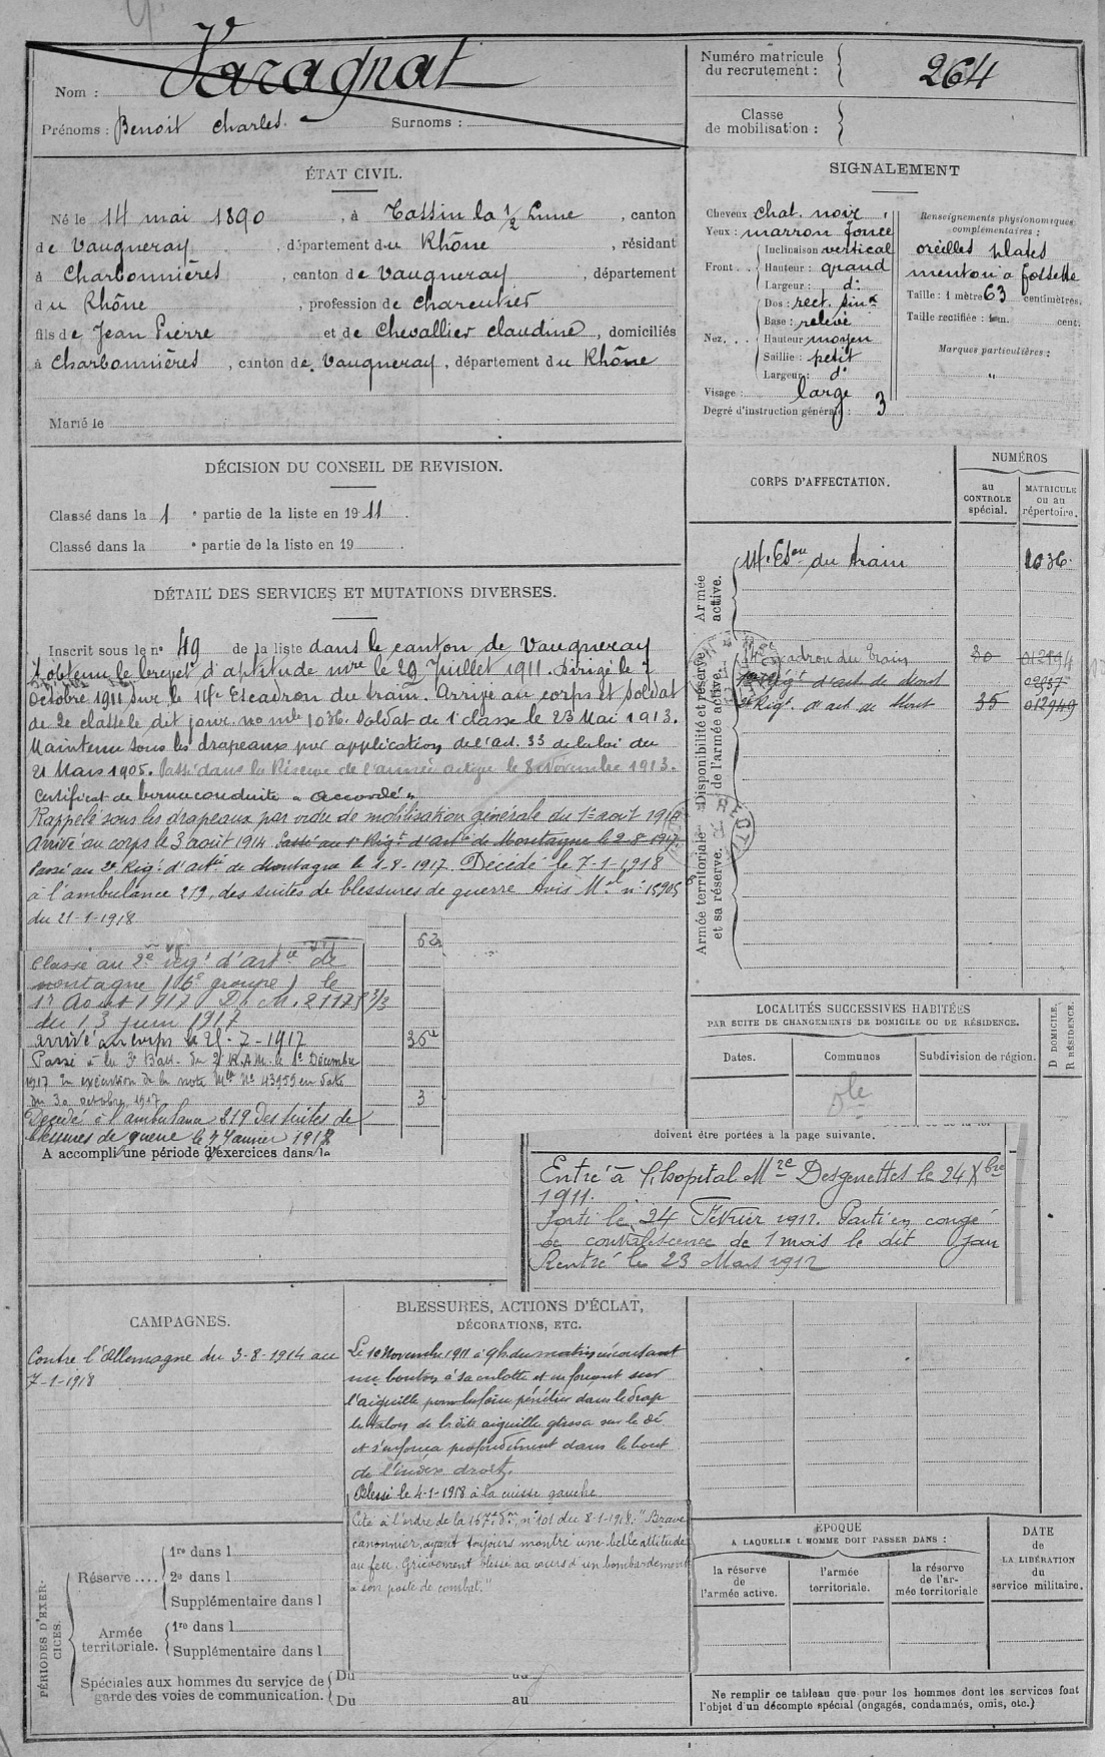 Nom : Varagnat
Prénoms : Benoit Charles. Surnoms :
Numéro matricule du recrutement : 264
Classe de mobilisation :
ÉTAT CIVIL.
Né le 14 mai 1890, à Tassin la 1/2 Lune, canton
de Vaugneray, département du Rhône, résidant
à Charbonnières, canton de Vaugneray, département
du Rhône, profession de Charcutier
fils de Jean Pierre et de Chevallier Claudine, domiciliés
à Charbonnières, canton de Vaugneray, département du Rhône
Marié le
SIGNALEMENT
Cheveux chat. noir,
Yeux : marron foncé
Front.. Inclinaison vertical
Hauteur : grand
Largeur : d°
Nez... Dos : rect. sinx
Base : relevé
Hauteur moyen
Saillie : petit
Largeur : d°
Visage : large
Degré d'instruction générale : 3
Renseignements physionomiques complémentaires :
oreilles plates
menton à fossette
Taille : 1 mètre 63 centimètres.
Taille rectifiée : 1m. cent.
Marques particulières :
"
DÉCISION DU CONSEIL DE REVISION.
Classé dans la 1 e partie de la liste en 1911.
Classé dans la e partie de la liste en 19 .
DÉTAIL DES SERVICES ET MUTATIONS DIVERSES.
Inscrit sous le n° 49 de la liste dans le canton de Vaugneray
A obtenu le brevet d'aptitude mre le 29 Juillet 1911. Dirigé le 7
Octobre 1911 sur le 14e Escadron du train. Arrivé au corps et soldat
de 2e classe le dit jour. no mle 1036. Soldat de 1e classe le 23 Mai 1913.
Maintenu sous les drapeaux par application de l'art. 33 de la loi du
21 Mars 1905. Passé dans la Réserve de l'armée active le 8 Novembre 1913.
Certificat de bonne conduite « Accordé »
Rappelé sous les drapeaux par ordre de mobilisation générale du 1er août 1914
Arrivé au corps le 3 août 1914. Passé au 1er Régt d'Artie de Montagne le 2-8-1917.
Passé au 2e Régt d'Artie de Montagne le 1-8-1917. Décédé le 7-1-1918
à l'ambulance 219, des suites de blessures de guerre Avis Mel n° 15905
du 21-1-1918
Classé au 2e régt d'artie de
montagne (6e groupe) le
1r Août 1917 D. M. 21125 3/3
du 13 juin 1917
arrivé au corps le 25-7-1917
Passé à la 3e Batt. du 2e R.A.M. le 1er Décembre
1917 En exécution de la note Mlle No 43959 en date
du 30 octobre 1917
Décédé à l'ambulance 219 des suites de
blessures de guerre le 7 Janvier 1918
A accompli une période d'exercices dans la
3
CORPS D'AFFECTATION.
NUMÉROS
au CONTROLE spécial.
MATRICULE ou au répertoire.
Armée active.
14e Eson du train 1036.
Disponibilité et réserve de l'armée active.
14e Escadron du Train 80
1er Régt d'art. de Mont
2e Régt. d'art. de Mont 35 012949
Armée territoriale et sa réserve.
LOCALITÉS SUCCESSIVES HABITÉES
PAR SUITE DE CHANGEMENTS DE DOMICILE OU DE RÉSIDENCE.
Dates. Communes Subdivision de région. D DOMICILE. R RÉSIDENCE.
doivent être portées à la page suivante.
Entré à l'hopital Mre Desgenettes le 24 Xbre
1911.
Sorti le 24 Février 1912. Parti en congé
de convalescence de 1 mois le dit jour
Rentré le 23 Mars 1912
CAMPAGNES.
Contre l'Allemagne du 3-8-1914 au
7-1-1918
BLESSURES, ACTIONS D'ÉCLAT,
DÉCORATIONS, ETC.
Le 10 Novembre 1911 à 9h. du matin en cousant
un bouton à sa culotte et en forçant sur
l'aiguille pour la faire pénétrer dans le drap
le talon de la dite aiguille glissa sur le dé
et s'enfonça profondément dans le bout
de l'index droit.
Blessé le 4-1-1918 à la cuisse gauche.
Cité à l'ordre de la 167e Don n° 101 du 8-1-1918. "Brave
canonnier, ayant toujours montré une belle attitude
au feu. Grièvement blessé au cours d'un bombardement
à son poste de combat."
PÉRIODES D'EXERCICES.
Réserve.... 1re dans l
2e dans l
Supplémentaire dans l
Armée territoriale. 1re dans l
Supplémentaire dans l
Spéciales aux hommes du service de garde des voies de communication. Du au
Du au
EPOQUE
A LAQUELLE L'HOMME DOIT PASSER DANS :
la réserve de l'armée active.
l'armée territoriale.
la réserve de l'armée territoriale
DATE de LA LIBÉRATION du service militaire.
Ne remplir ce tableau que pour les hommes dont les services font
l'objet d'un décompte spécial (engagés, condamnés, omis, etc.)